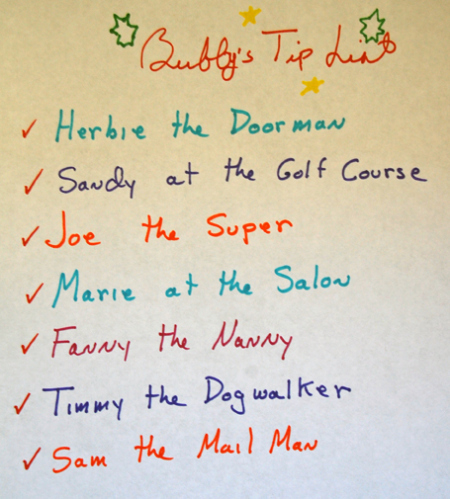 Bubby's Tip List
Herbie the Doorman
Sandy at the Golf Course
Joe the Super
Marie at the Salon
Fanny the Nanny
Timmy the Dogwalker
Sam the Mail Man